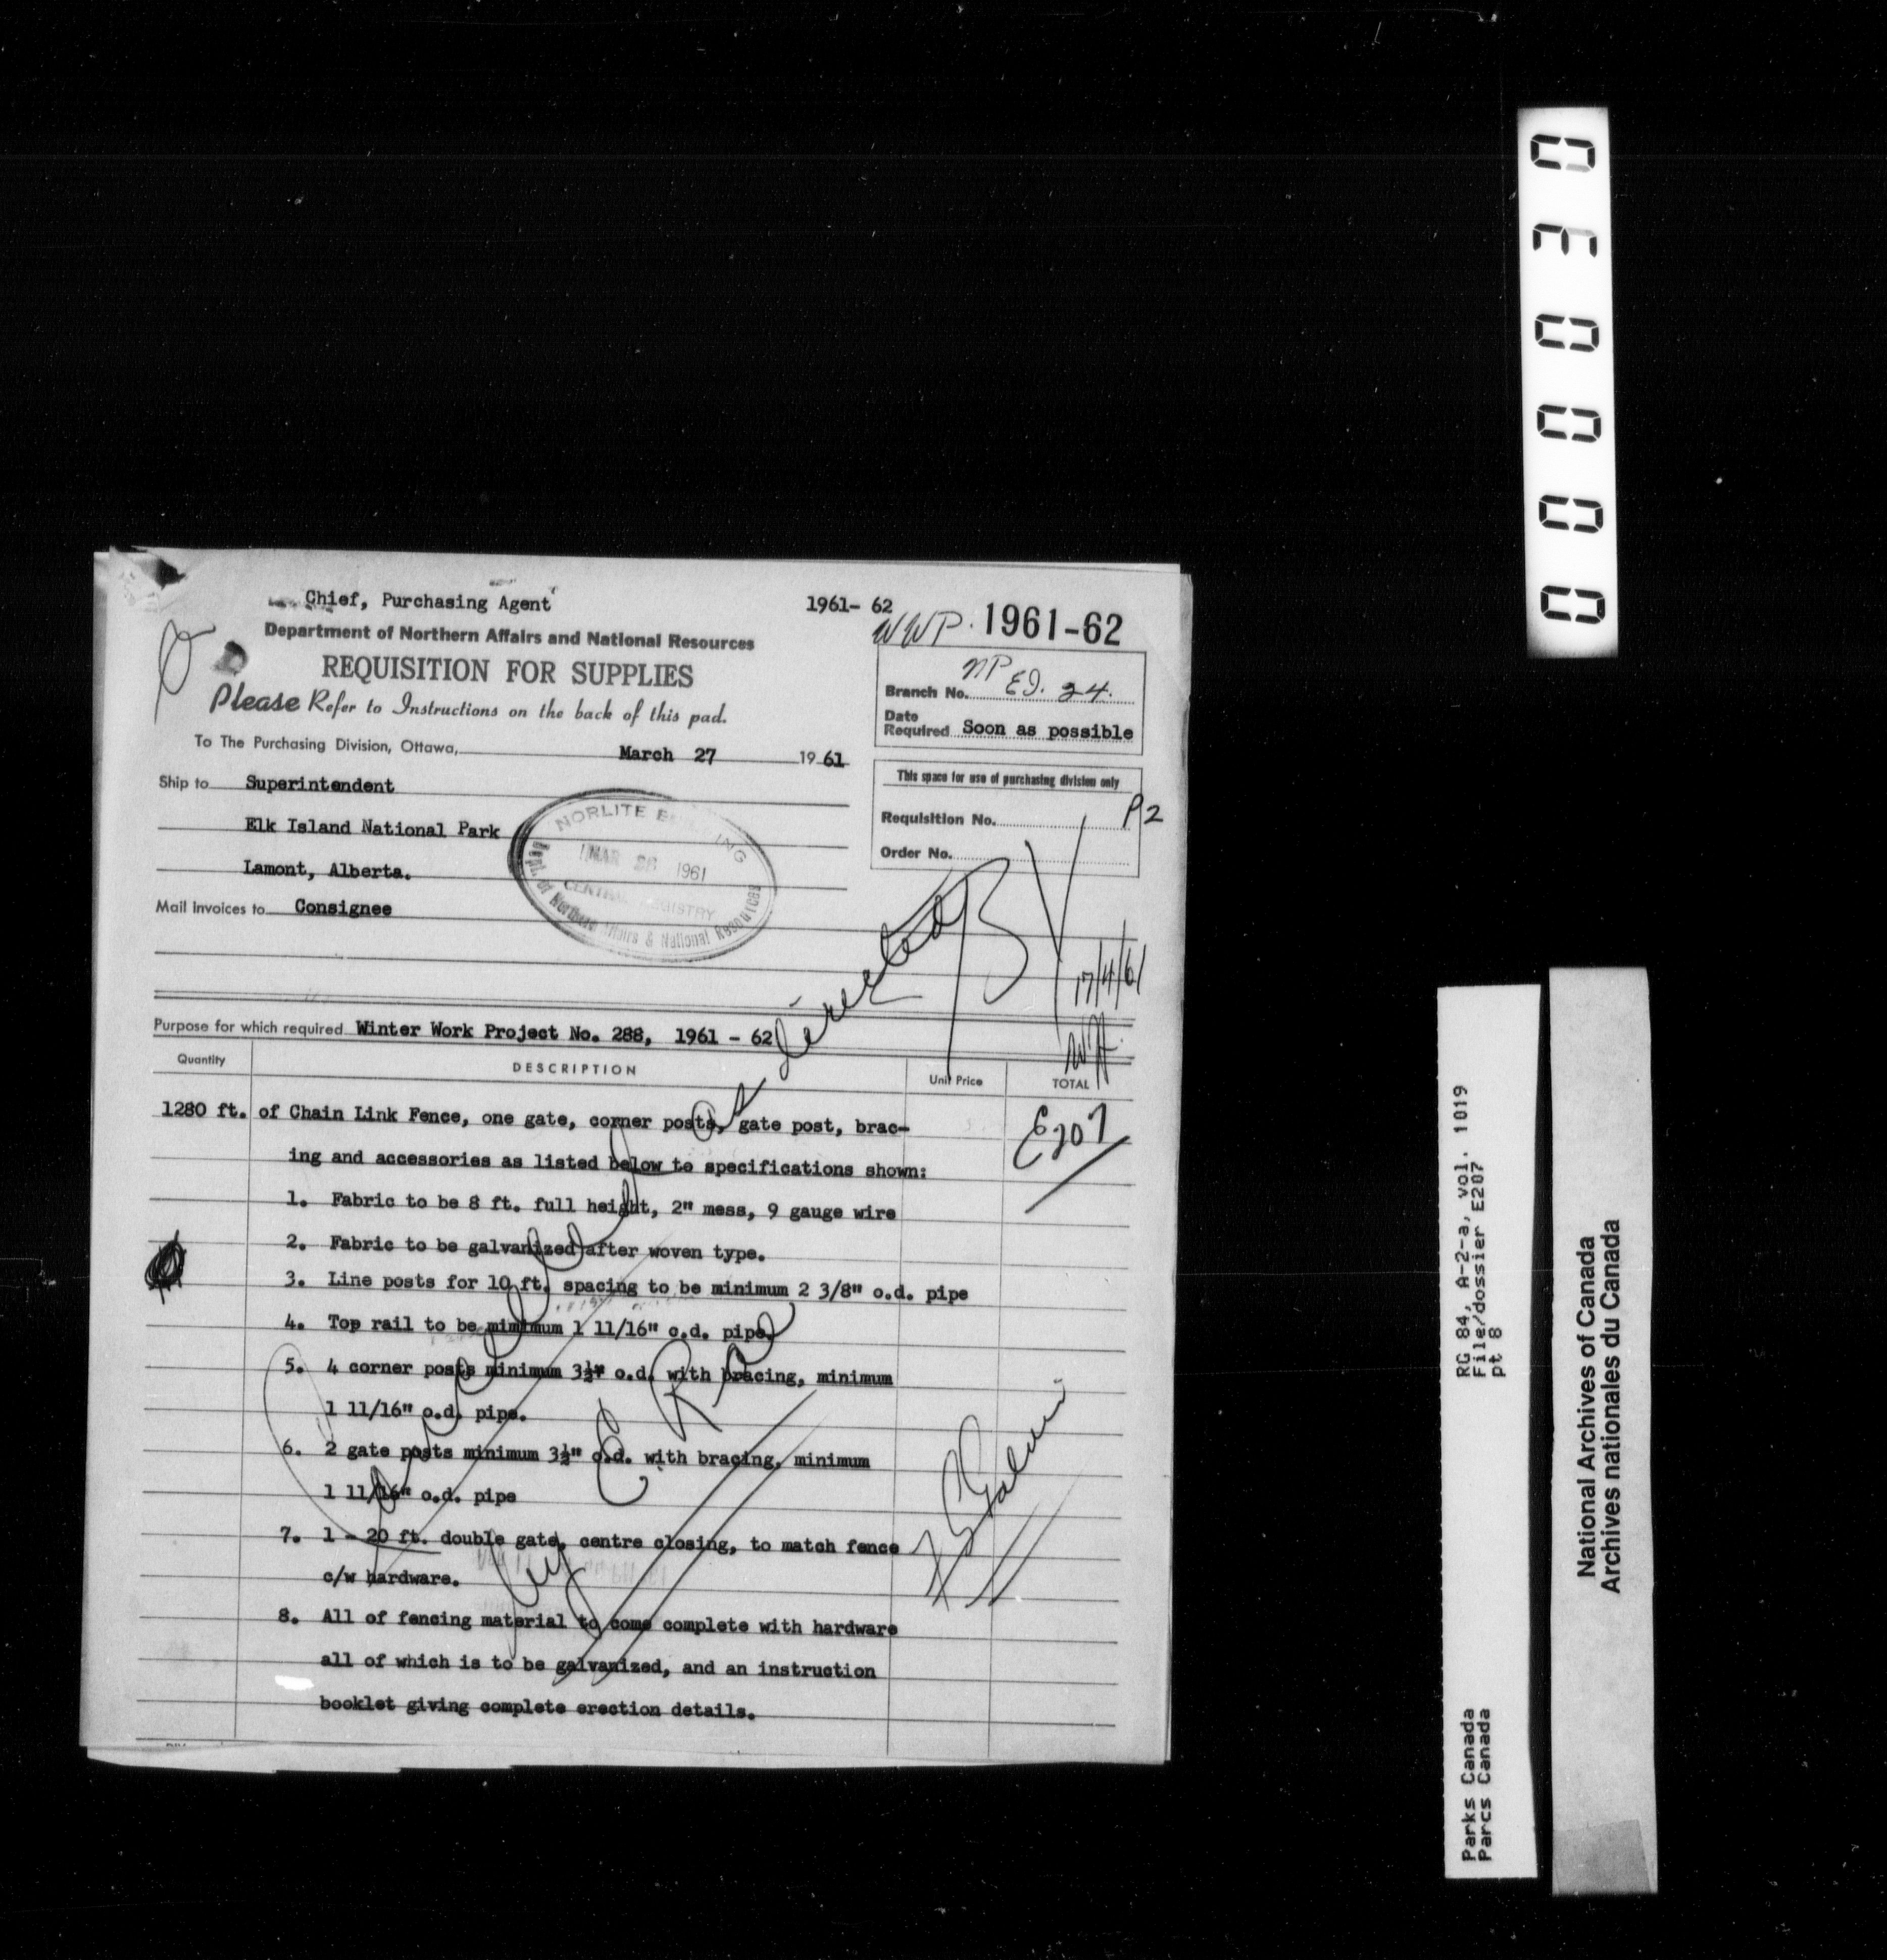 Chief, Purchasing Agent
1961- 62
WWP. 1961-62
Department of Northern Affairs and National Resources
REQUISITION FOR SUPPLIES
Please Refer to Instructions on the back of this pad.
NP
Branch No. EI. 24.
Date
Required Soon as possible
To The Purchasing Division, Ottawa, March 27 1961
This space for use of purchasing division only
Requisition No.
P2
Order No.
Ship to Superintendent
Elk Island National Park
Lamont, Alberta.
Mail Invoices to Consignee
NORLITE
MAR 28 1961
CENTRAL REGISTRY
Dept. of Northern Affairs & National Resources
17/4/61
Purpose for which required Winter Work Project No. 288, 1961 - 62
Quantity DESCRIPTION Unit Price TOTAL
1280 ft. of Chain Link Fence, one gate, corner posts, gate post, brac-
E207
ing and accessories as listed below to specifications shown:
1. Fabric to be 8 ft. full height, 2" mess, 9 gauge wire
2. Fabric to be galvanized after woven type.
3. Line posts for 10 ft. spacing to be minimum 2 3/8" o.d. pipe
4. Top rail to be minimum 1 11/16" o.d. pipe.
5. 4 corner posts minimum 3½" o.d. with bracing, minimum
1 11/16" o.d. pipe.
6. 2 gate posts minimum 3½" o.d. with bracing, minimum
1 11/16" o.d. pipe
7. 1 - 20 ft. double gate, centre closing, to match fence
c/w hardware.
8. All of fencing material to come complete with hardware
all of which is to be galvanized, and an instruction
booklet giving complete erection details.
030000
RG 84, A-2-a, vol. 1019
File/dossier E207
pt 8
Parks Canada
Parcs Canada
National Archives of Canada
Archives nationales du Canada